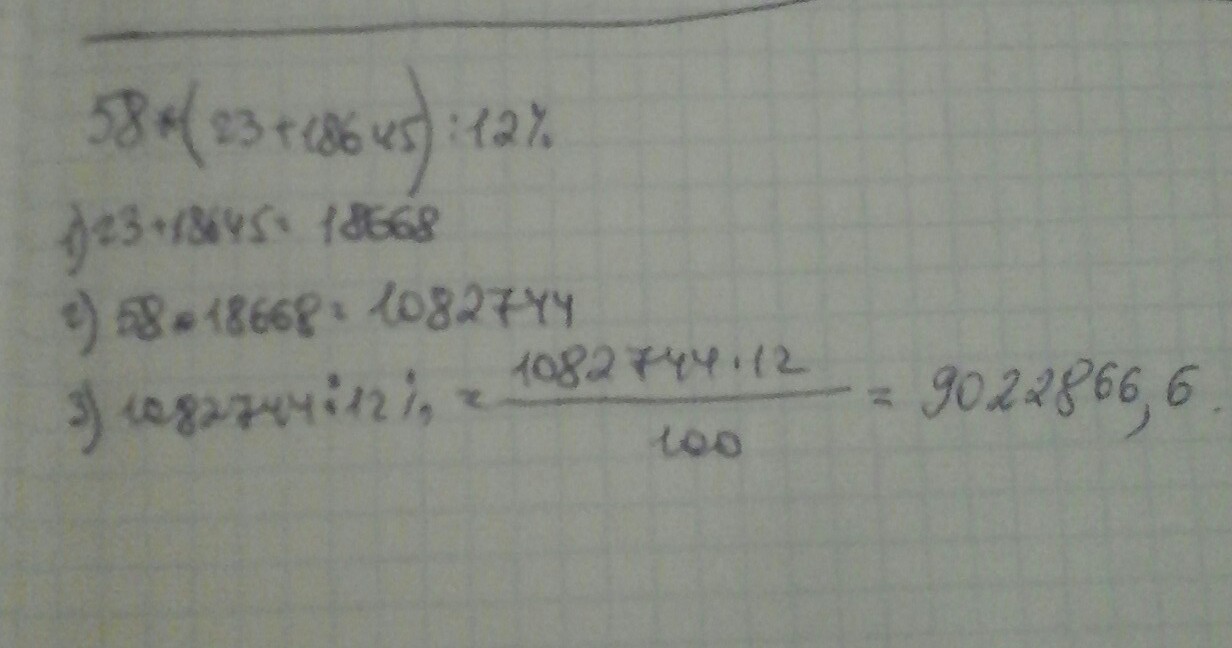 58•(23+18645):12%
1) 23+18645= 18668
2) 58•18668= 1082744
3) 1082744:12% = 1082744·12 / 100 = 9022866,6.